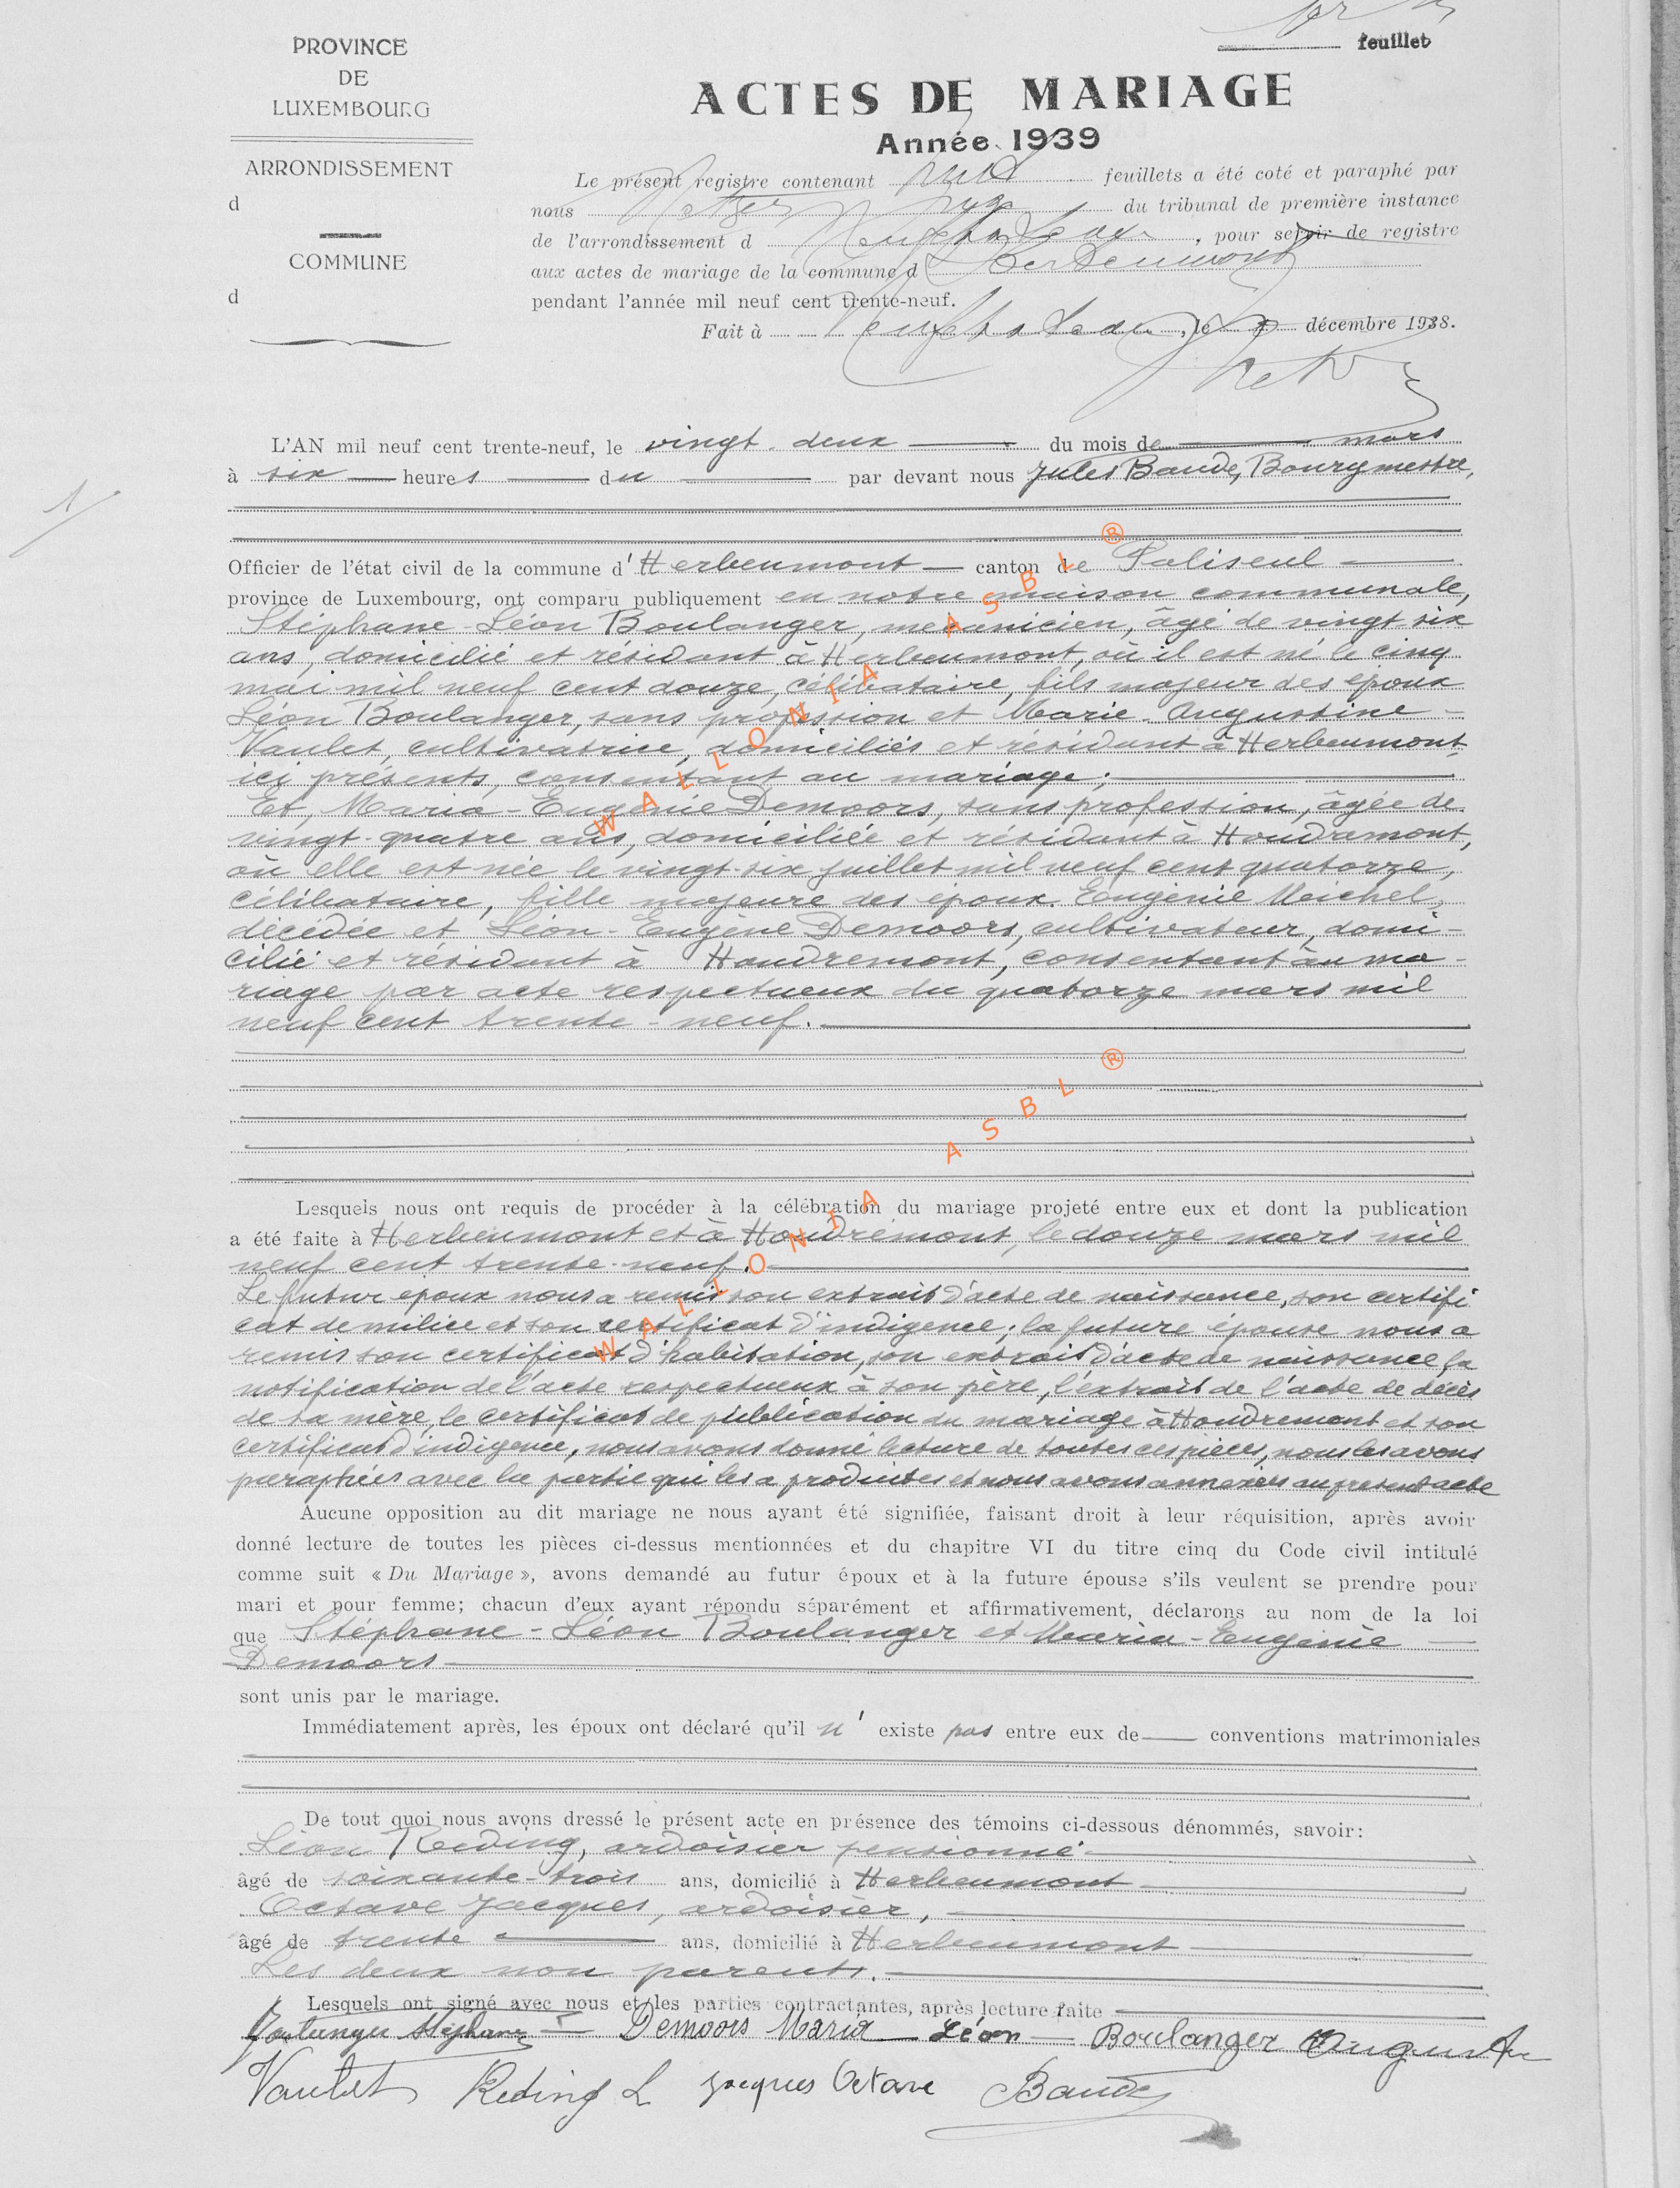 feuillet
PROVINCE
DE
LUXEMBOURG
ARRONDISSEMENT
d
COMMUNE
d
ACTES DE MARIAGE
Année 1939
Le présent registre contenant huit feuillets a été coté et paraphé par
nous juge du tribunal de première instance
de l'arrondissement d Neufchateau, pour servir de registre
aux actes de mariage de la commune d Herbeumont
pendant l'année mil neuf cent trente-neuf.
Fait à Neufchateau, le décembre 1938.
1/
L'AN mil neuf cent trente-neuf, le vingt-deux du mois de mars
à six heures du par devant nous Jules Baude, Bourgmestre,
Officier de l'état civil de la commune d'Herbeumont canton de Paliseul
province de Luxembourg, ont comparu publiquement en notre maison communale,
Stéphane-Léon Boulanger, mécanicien, âgé de vingt six
ans, domicilié et résidant à Herbeumont, où il est né le cinq
mai mil neuf cent douze, célibataire, fils majeur des époux
Léon Boulanger, sans profession et Marie-Augustine
Vaulet, cultivatrice, domiciliés et résidant à Herbeumont
ici présents, consentant au mariage;
Et, Maria-Eugénie Demoors, sans profession, âgée de
vingt-quatre ans, domiciliée et résidant à Houdremont,
où elle est née le vingt-six juillet mil neuf cent quatorze,
célibataire, fille majeure des époux Eugénie Meichel,
décédée et Léon-Eugène Demoors, cultivateur, domi-
cilié et résidant à Houdremont, consentant au ma-
riage par acte respectueux du quatorze mars mil
neuf cent trente-neuf.
WALLONIA ASBL ®
WALLONIA ASBL ®
Lesquels nous ont requis de procéder à la célébration du mariage projeté entre eux et dont la publication
a été faite à Herbeumont et à Houdremont, le douze mars mil
neuf cent trente-neuf.
Le futur époux nous a remis son extrait d'acte de naissance, son certifi
cat de milice et son certificat d'indigence; la future épouse nous a
remis son certificat d'habitation, son extrait d'acte de naissance, la
notification de l'acte respectueux à son père, l'extrait de l'acte de décès
de sa mère, le certificat de publication du mariage à Houdremont et son
certificat d'indigence, nous avons donné lecture de toutes ces pièces, nous les avons
paraphées avec la partie qui les a produites et nous avons annexées au présent acte
Aucune opposition au dit mariage ne nous ayant été signifiée, faisant droit à leur réquisition, après avoir
donné lecture de toutes les pièces ci-dessus mentionnées et du chapitre VI du titre cinq du Code civil intitulé
comme suit « Du Mariage », avons demandé au futur époux et à la future épouse s'ils veulent se prendre pour
mari et pour femme; chacun d'eux ayant répondu séparément et affirmativement, déclarons au nom de la loi
que Stéphane-Léon Boulanger et Maria-Eugénie
Demoors
sont unis par le mariage.
Immédiatement après, les époux ont déclaré qu'il n'existe pas entre eux de conventions matrimoniales
De tout quoi nous avons dressé le présent acte en présence des témoins ci-dessous dénommés, savoir:
Léon Reding, ardoisier pensionné
âgé de soixante-trois ans, domicilié à Herbeumont
Octave Jacques, ardoisier,
âgé de trente ans, domicilié à Herbeumont
Les deux non parents.
Lesquels ont signé avec nous et les parties contractantes, après lecture faite
Boulanger Stéphane Demoors Maria Léon Boulanger Augustine
Vaulet Reding L Jacques Octave Baude